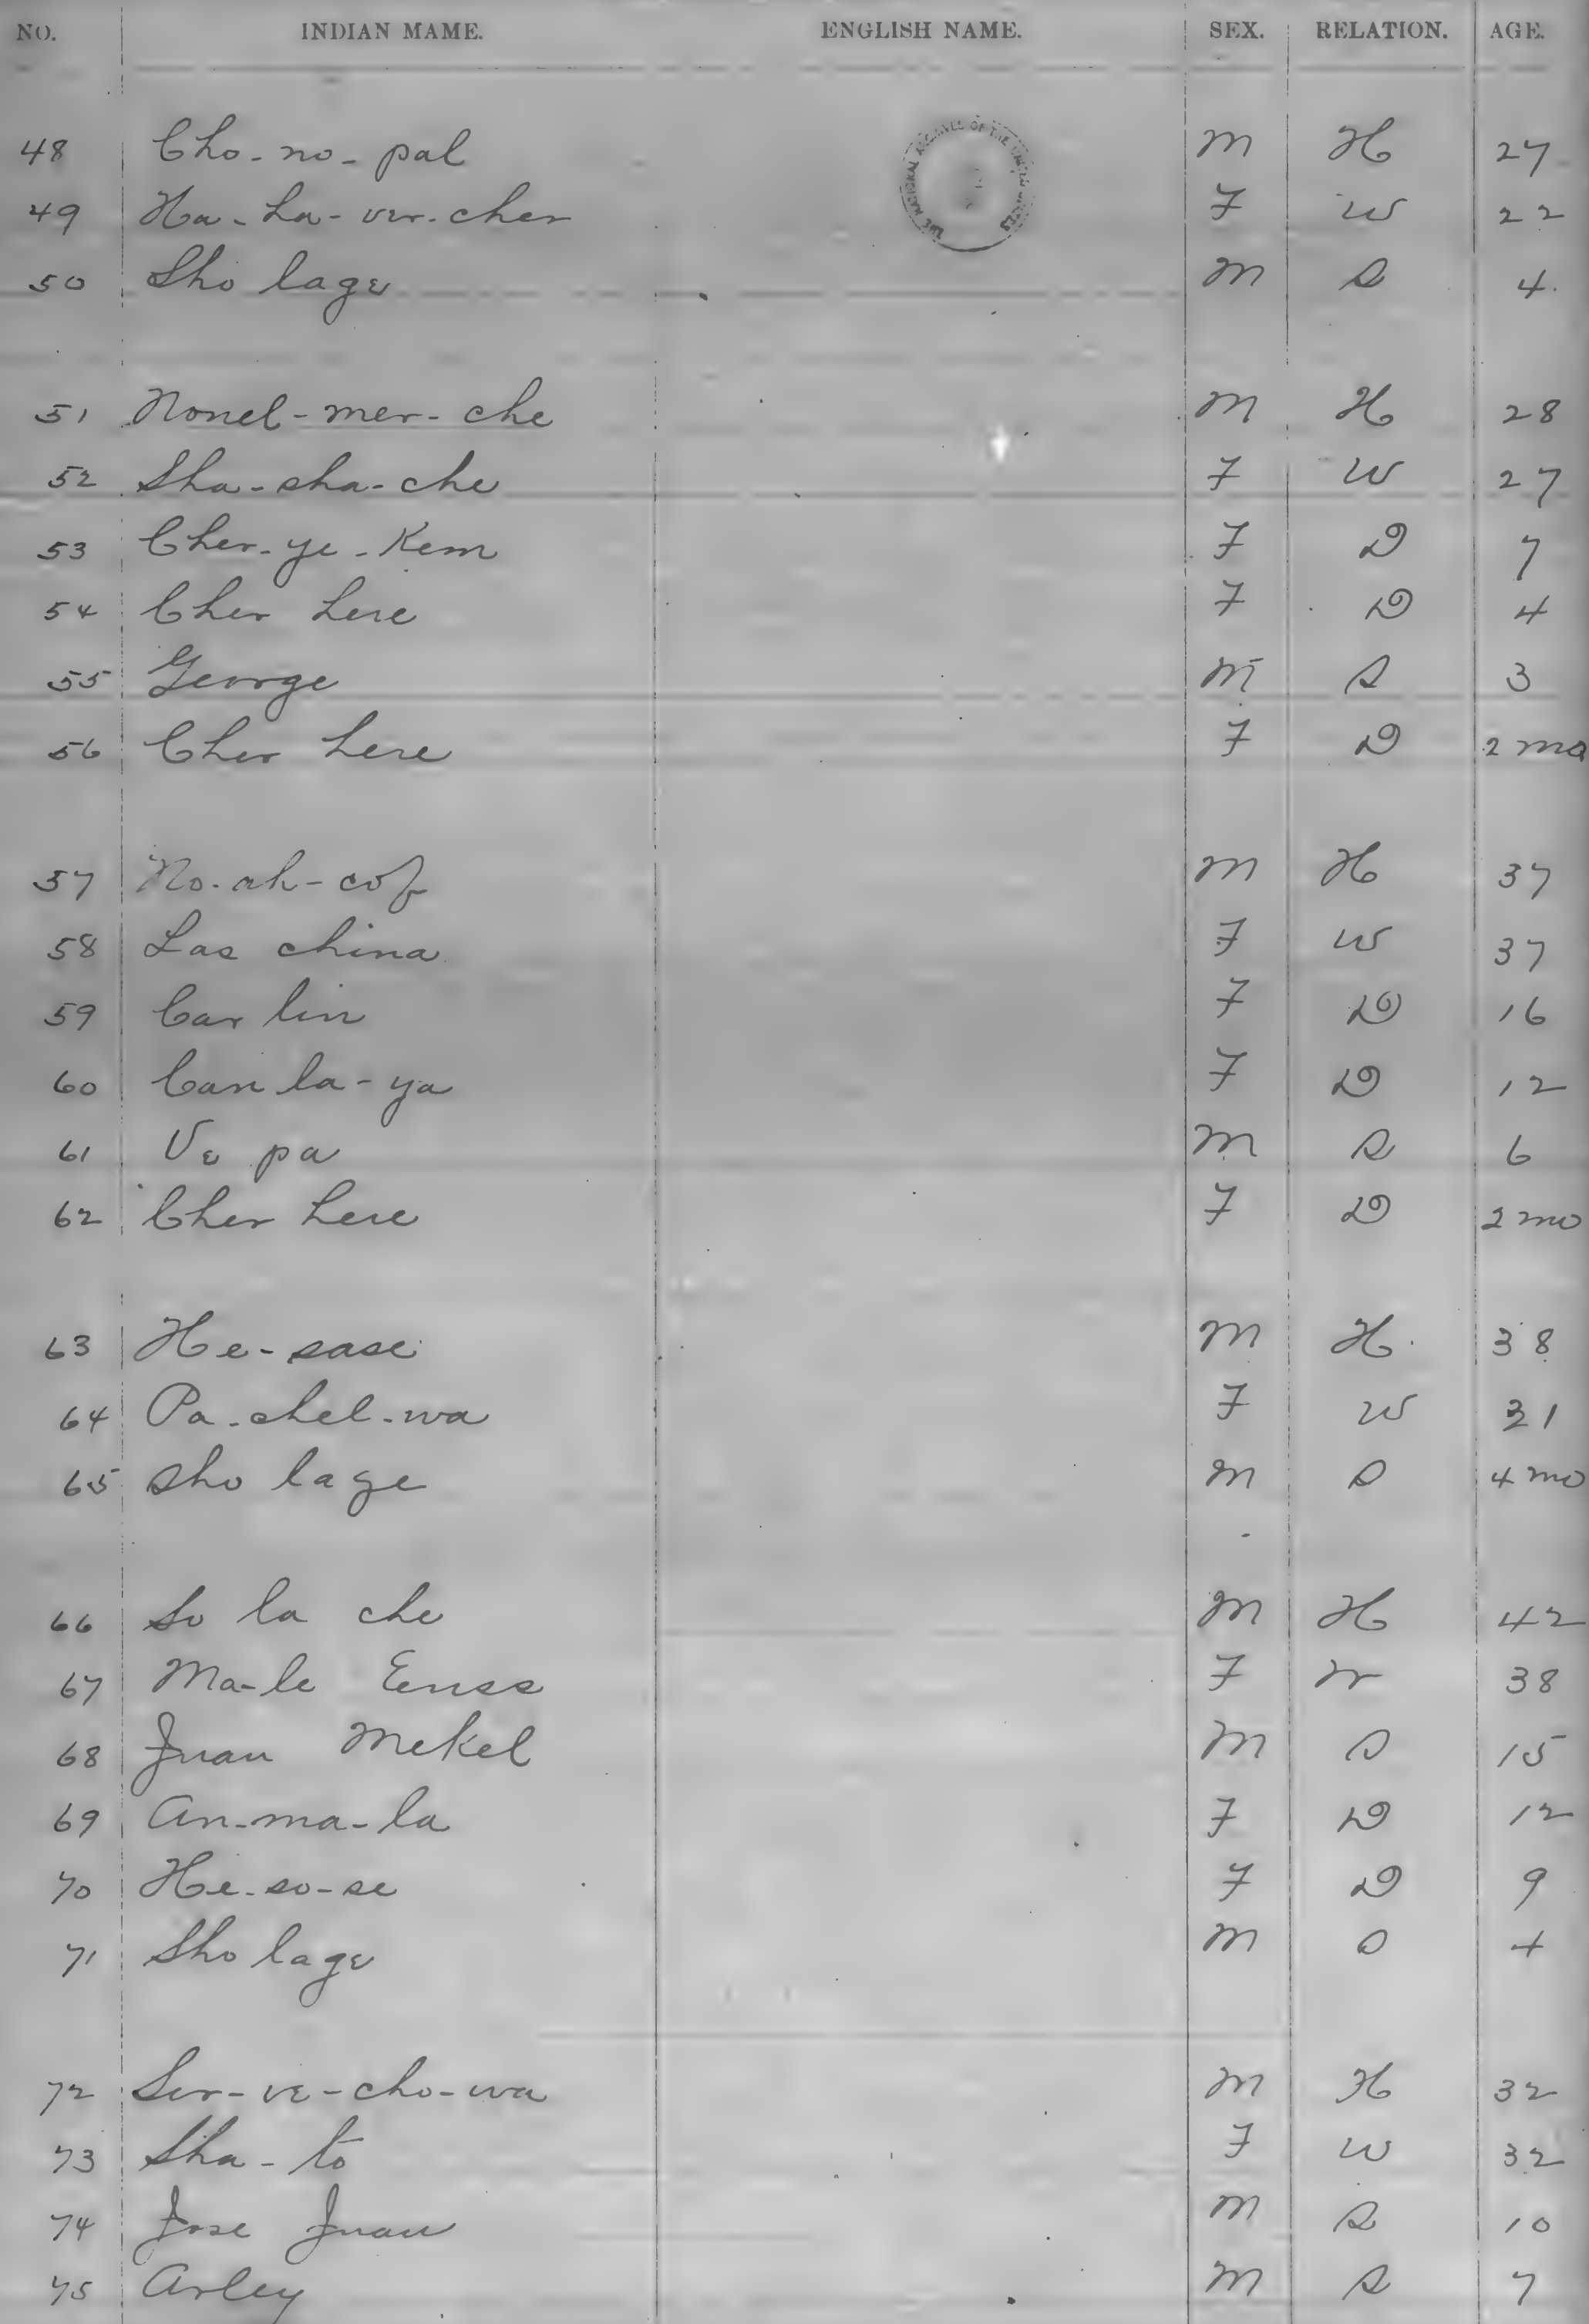 NO. INDIAN MAME. ENGLISH NAME. SEX. RELATION. AGE.
THE NATIONAL ARCHIVES OF THE UNITED STATES
48 Cho-no-pal M H 27
49 Ha-ha-ver-cher F W 22
50 Sho lage M S 4
51 Nonel-mer-che M H 28
52 Sha-sha-che F W 27
53 Cher-ye-Kem F D 7
54 Cher here F D 4
55 George M S 3
56 Cher here F D 2 mo
57 No-ah-cof M H 37
58 Las china F W 37
59 Car lin F D 16
60 Can la-ya F D 12
61 Ve pa M S 6
62 Cher here F D 2 mo
63 He-sase M H 38
64 Pa-chel-wa F W 31
65 Sho lage M S 4 mo
66 So la che M H 42
67 Ma-le F W 38
68 Juan Mekel M S 15
69 An-ma-la F D 12
70 He-so-se F D 9
71 Sho lage M S 4
72 Ser-ve-cho-wa M H 32
73 Sha-to F W 32
74 Jose Juan M S 10
75 Arley M S 7